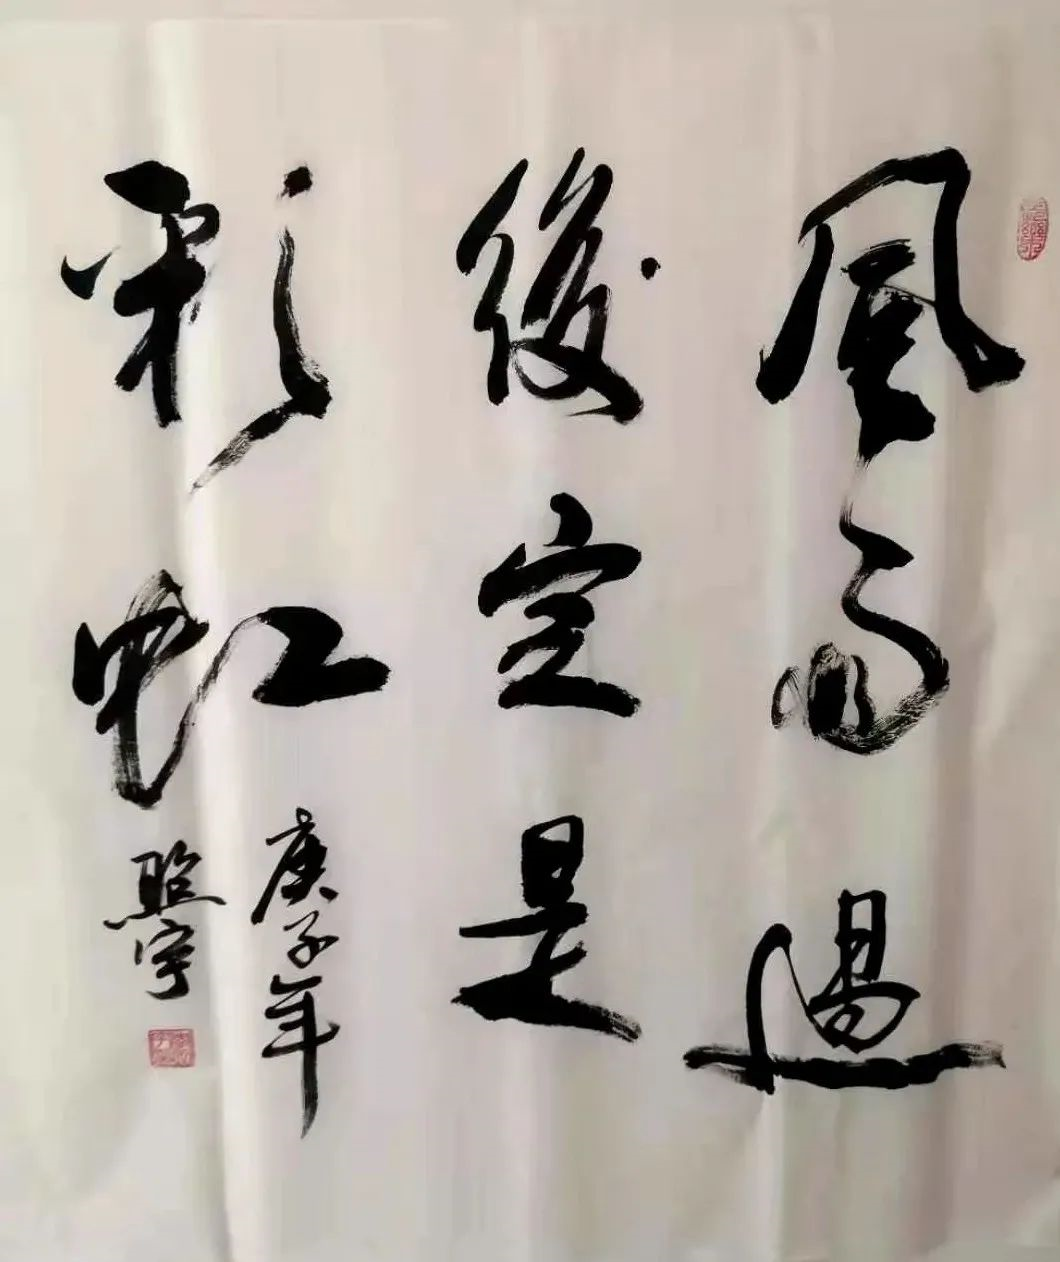 風雨過
後定是
彩虹
庚子年
照宇